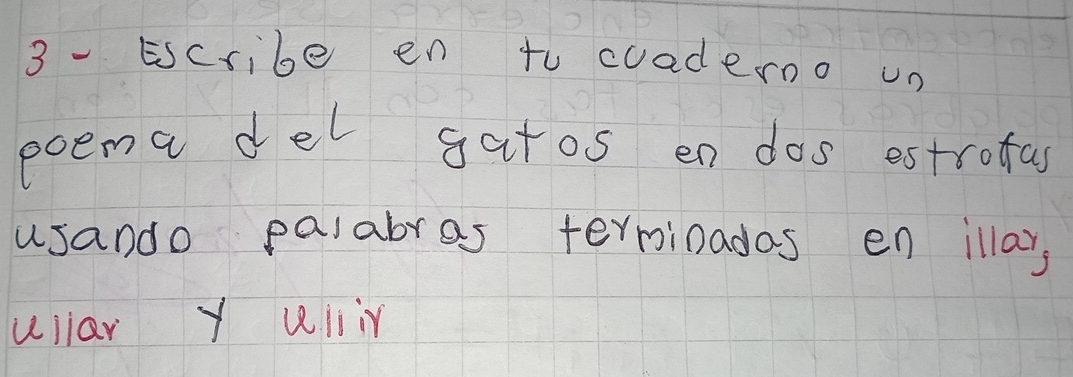 3- Escribe en tu cuaderno un
poema del gatos en dos estrofas
usando palabras terminadas en illar,
ullar y ullir